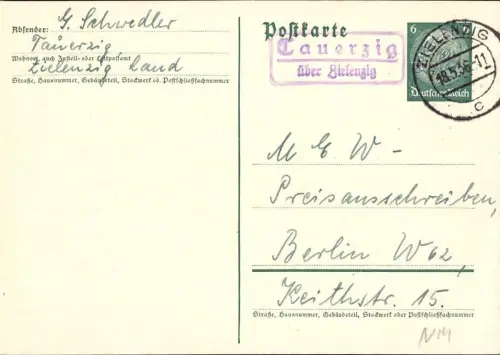 Absender: G. Schwedler
Tauerzig
Wohnort, auch Zustell- oder Leitpostamt
Zielenzig Land
Straße, Hausnummer, Gebäudeteil, Stockwerk od. Postschließfachnummer
Postkarte
Tauerzig
über Zielenzig
6
Deutsches Reich
ZIELENZIG
18.5.36.-11
c
M E W -
Preisausschreiben,
Berlin W 62,
Keithstr. 15.
Straße, Hausnummer, Gebäudeteil, Stockwerk oder Postschließfachnummer